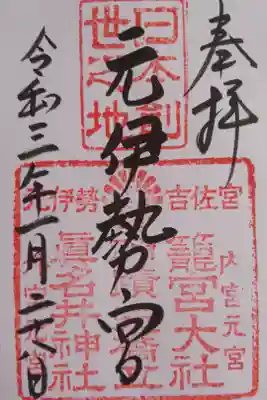 奉拝
日本創
世之地
元伊勢宮
元伊勢
吉佐宮
内宮元宮
籠宮大社
眞名井神社
令和三年一月二十八日